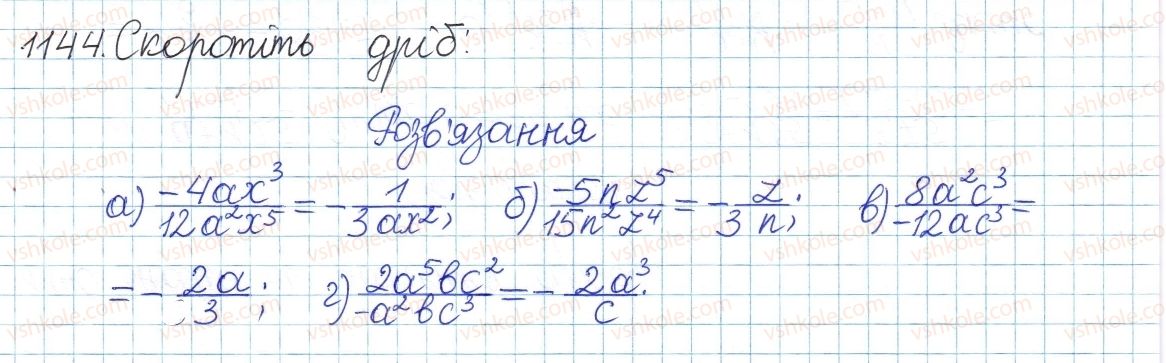 1144. Скоротіть дріб:
Розв'язання
а) -4ax³/12a²x⁵ = -1/3ax²; б) -5nz⁵/15n²z⁴ = -z/3n; в) 8a²c³/-12ac³ =
= -2a/3; г) 2a⁵bc²/-a²bc³ = -2a³/c.